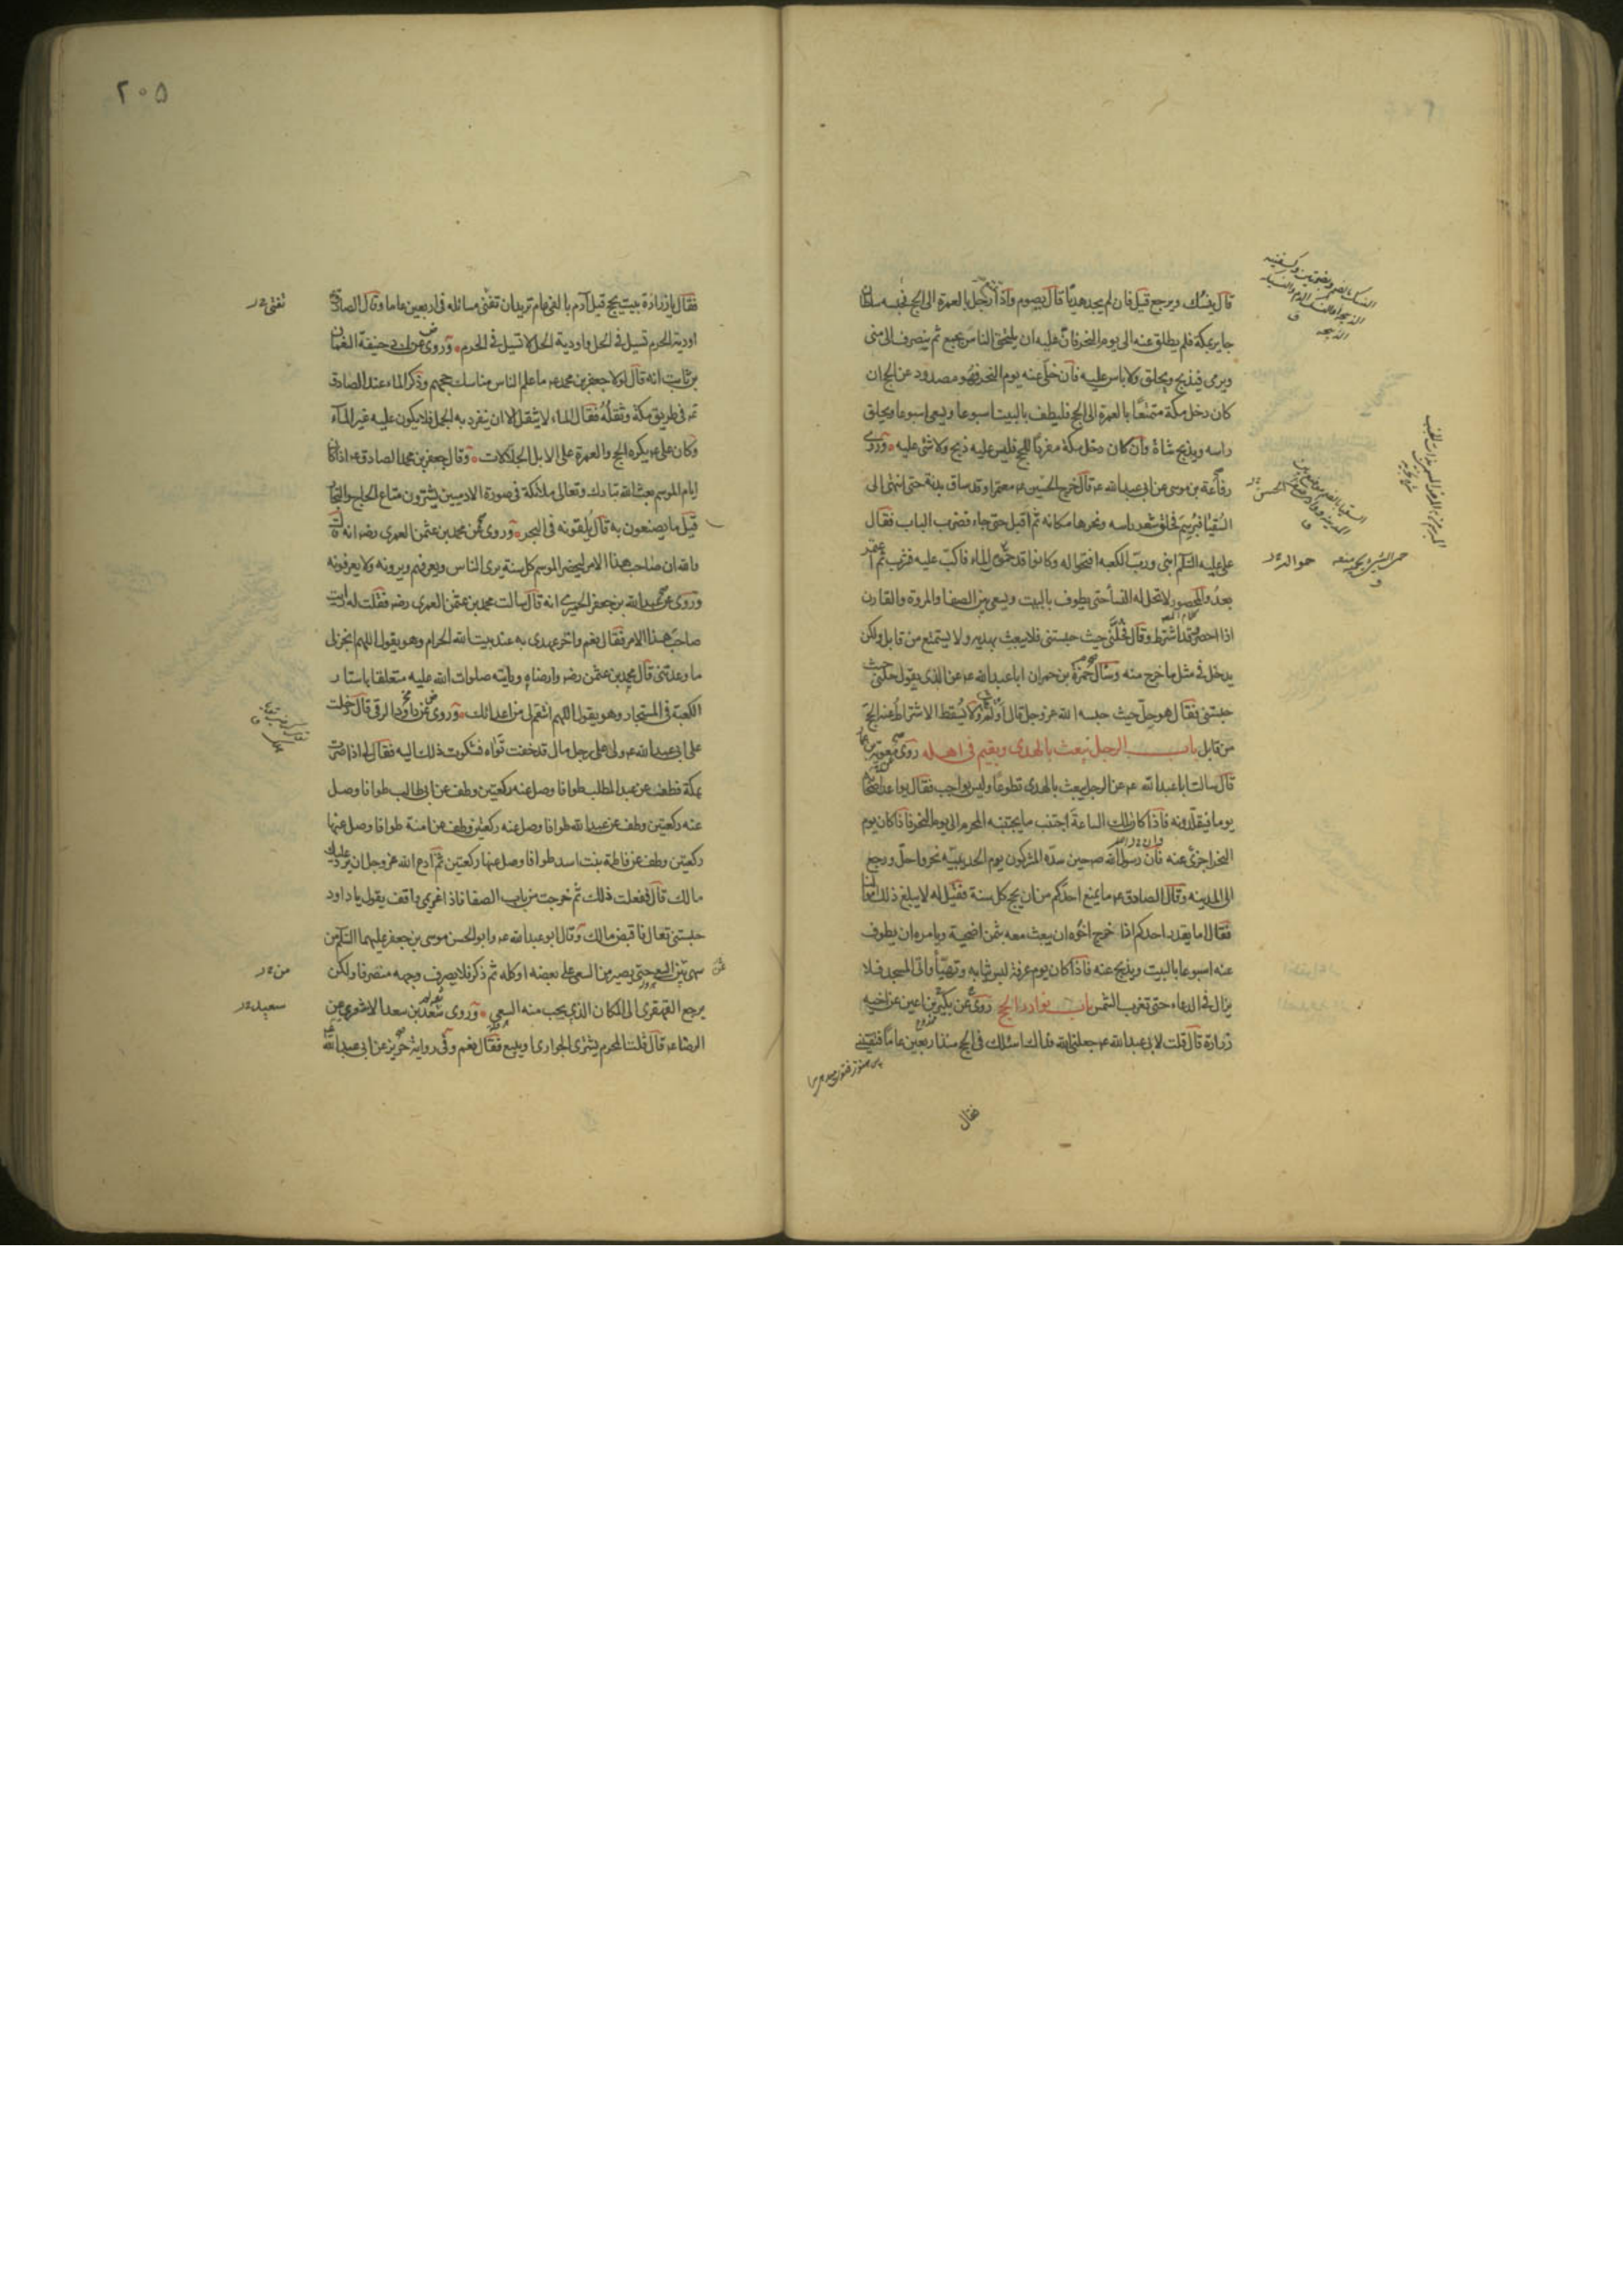 قال ينسك ويرجع قيل فان لم يجد هديا قال يصوم واذا تمتع رجل بالعمرة الى الحج فحبسه سلطان
جاير بمكة فلم يطلق عنه الى يوم النحر فان عليه ان يلحق الناس بجمع ثم ينصرف الى منى
ويرمى ويذبح ويحلق ولا باس عليه فان خلى عنه يوم النحر فهو مصدود عن الحج ان
كان دخل مكة متمتعا بالعمرة الى الحج فليطف بالبيت اسبوعا ويسعى اسبوعا ويحلق
راسه ويذبح شاة وان كان دخل مكة مفردا للحج فليس عليه ذبح ولا شئ عليه وروى
رفاعة بن موسى عن ابى عبدالله ع قال خرج الحسين ع معتمرا وقد ساق بدنة حتى انتهى الى
السقيا فبرسم فحلق شعر راسه ونحرها مكانه ثم اقبل حتى جاء فضرب الباب فقال
على عليه السلام ابنى ورب الكعبه افتحوا له وكانوا قد حموا له الماء فاكب عليه فشرب ثم اعتمر
بعد والمحصور لا تحل له النسأ حتى يطوف بالبيت ويسعى بين الصفا والمروة والقارن
اذا احصر وقد اشترط وقال فحلنى حيث حبستنى فلا يبعث بهديه ولا يستمتع من قابل ولكن
يدخل فى مثل ما خرج منه وسئال حمزة بن حمران ابا عبدالله ع عن الذى يقول حلنى حيث
حبستنى فقال هو حل حيث حبسه الله عز وجل قال او لم يقل ولا يسقط الاشتراط عنه الحج
من قابل باب الرجل يبعث بالهدى ويقيم فى اهله روى معوية بن عمار
قال سالت ابا عبدالله ع عن الرجل يبعث بالهدى تطوعا وليس بواجب فقال يواعد اصحابه
يوما فيقلدونه فاذا كان تلك الساعة اجتنب ما يجتنبه المحرم الى يوم النحر فاذا كان يوم
النحر اجزئ عنه فان رسول الله ص حين صده المشركون يوم الحديبيه نحر واحل ورجع
الى المدينه وقال الصادق ع ما يمنع احدكم من ان يحج كل سنة فقيل له لا يبلغ ذلك اموالنا
فقال اما يقدر احدكم اذا خرج اخوه ان يبعث معه بثمن اضحية ويامره ان يطوف
عنه اسبوعا بالبيت ويذبح عنه فاذا كان يوم عرفة لبس ثيابه وتهيأ واتى المسجد فلا
يزال فى الدعاء حتى تغرب الشمس باب نوادر الحج روى عن بكير بن اعين عن اخيه
زرارة قال قلت لابى عبدالله ع جعلنى الله فداك اسئلك فى الحج منذ اربعين عاما فتفتينى
فقال
حوالد
٢٠٥
فقال يا زرارة بيت يحج قبل آدم بالفى عام تريد ان تفنى مسائله فى اربعين عاما وقال الصادق
اودية الحرم تسيل فى الحل واودية الحل لا تسيل فى الحرم وروى عن ابى حنيفة النعمان
بن ثابت انه قال لولا جعفر بن محمد ع ما علم الناس مناسك حجهم وذكر الماء عند الصادق
ع فى طريق مكة وثقله فقال الماء لا يثقل الا ان ينفرد به الجمل فلا يكون عليه غير المآء
وكان على ع يكره الحج والعمرة على الابل الجلالات وقال جعفر بن محمد الصادق ع اذا كان
ايام الموسم بعث الله تبارك وتعالى ملائكة فى صورة الادميين يشترون متاع الحاج والتجار
قيل ما يصنعون به قال يلقونه فى البحر وروى عن محمد بن عثمن العمرى رضه انه قال
والله ان صاحب هذا الامر ليحضر الموسم كل سنة يرى الناس ويعرفهم ويرونه ولا يعرفونه
وروى عن عبدالله بن جعفر الحميرى انه قال سالت محمد بن عثمن العمرى رضه فقلت له رايت
صاحب هذا الامر فقال نعم واخر عهدى به عند بيت الله الحرام وهو يقول اللهم انجز لى
ما وعدتنى قال محمد بن عثمن رضه وارضاه ورايته صلوات الله عليه متعلقا باستار
الكعبة فى المستجار وهو يقول اللهم انتقم لى من اعدائك وروى عن داود الرقى قال دخلت
على ابى عبدالله ع ولى على رجل مال قد خفت تواه فشكوت ذلك اليه فقال لى اذا صرت
بمكة فطف عن عبد المطلب طوافا وصل عنه ركعتين وطف عن ابى طالب طوافا وصل
عنه ركعتين وطف عن عبدالله طوافا وصل عنه ركعتين وطف عن امنة طوافا وصل عنها
ركعتين وطف عن فاطمة بنت اسد طوافا وصل عنها ركعتين ثم ادع الله عز وجل ان يرد عليك
مالك قال ففعلت ذلك ثم خرجت من باب الصفا فاذا غريمى واقف يقول يا داود
حبستنى تعال فاقبض مالك وقال ابو عبدالله ع وابو الحسن موسى بن جعفر عليهما السلام من
سهى عن السعى حتى يصير من السعى على بعضه او كله ثم ذكر فلا يصرف وجهه منصرفا ولكن
يرجع القهقرى الى المكان الذى يجب منه السعى وروى سعد بن سعد الاشعرى عن
الرضا ع قال قلت المحرم يشترى الجوارى او يبيع فقال نعم وفى رواية حريز عن ابى عبدالله
تفنى
من
سعيد